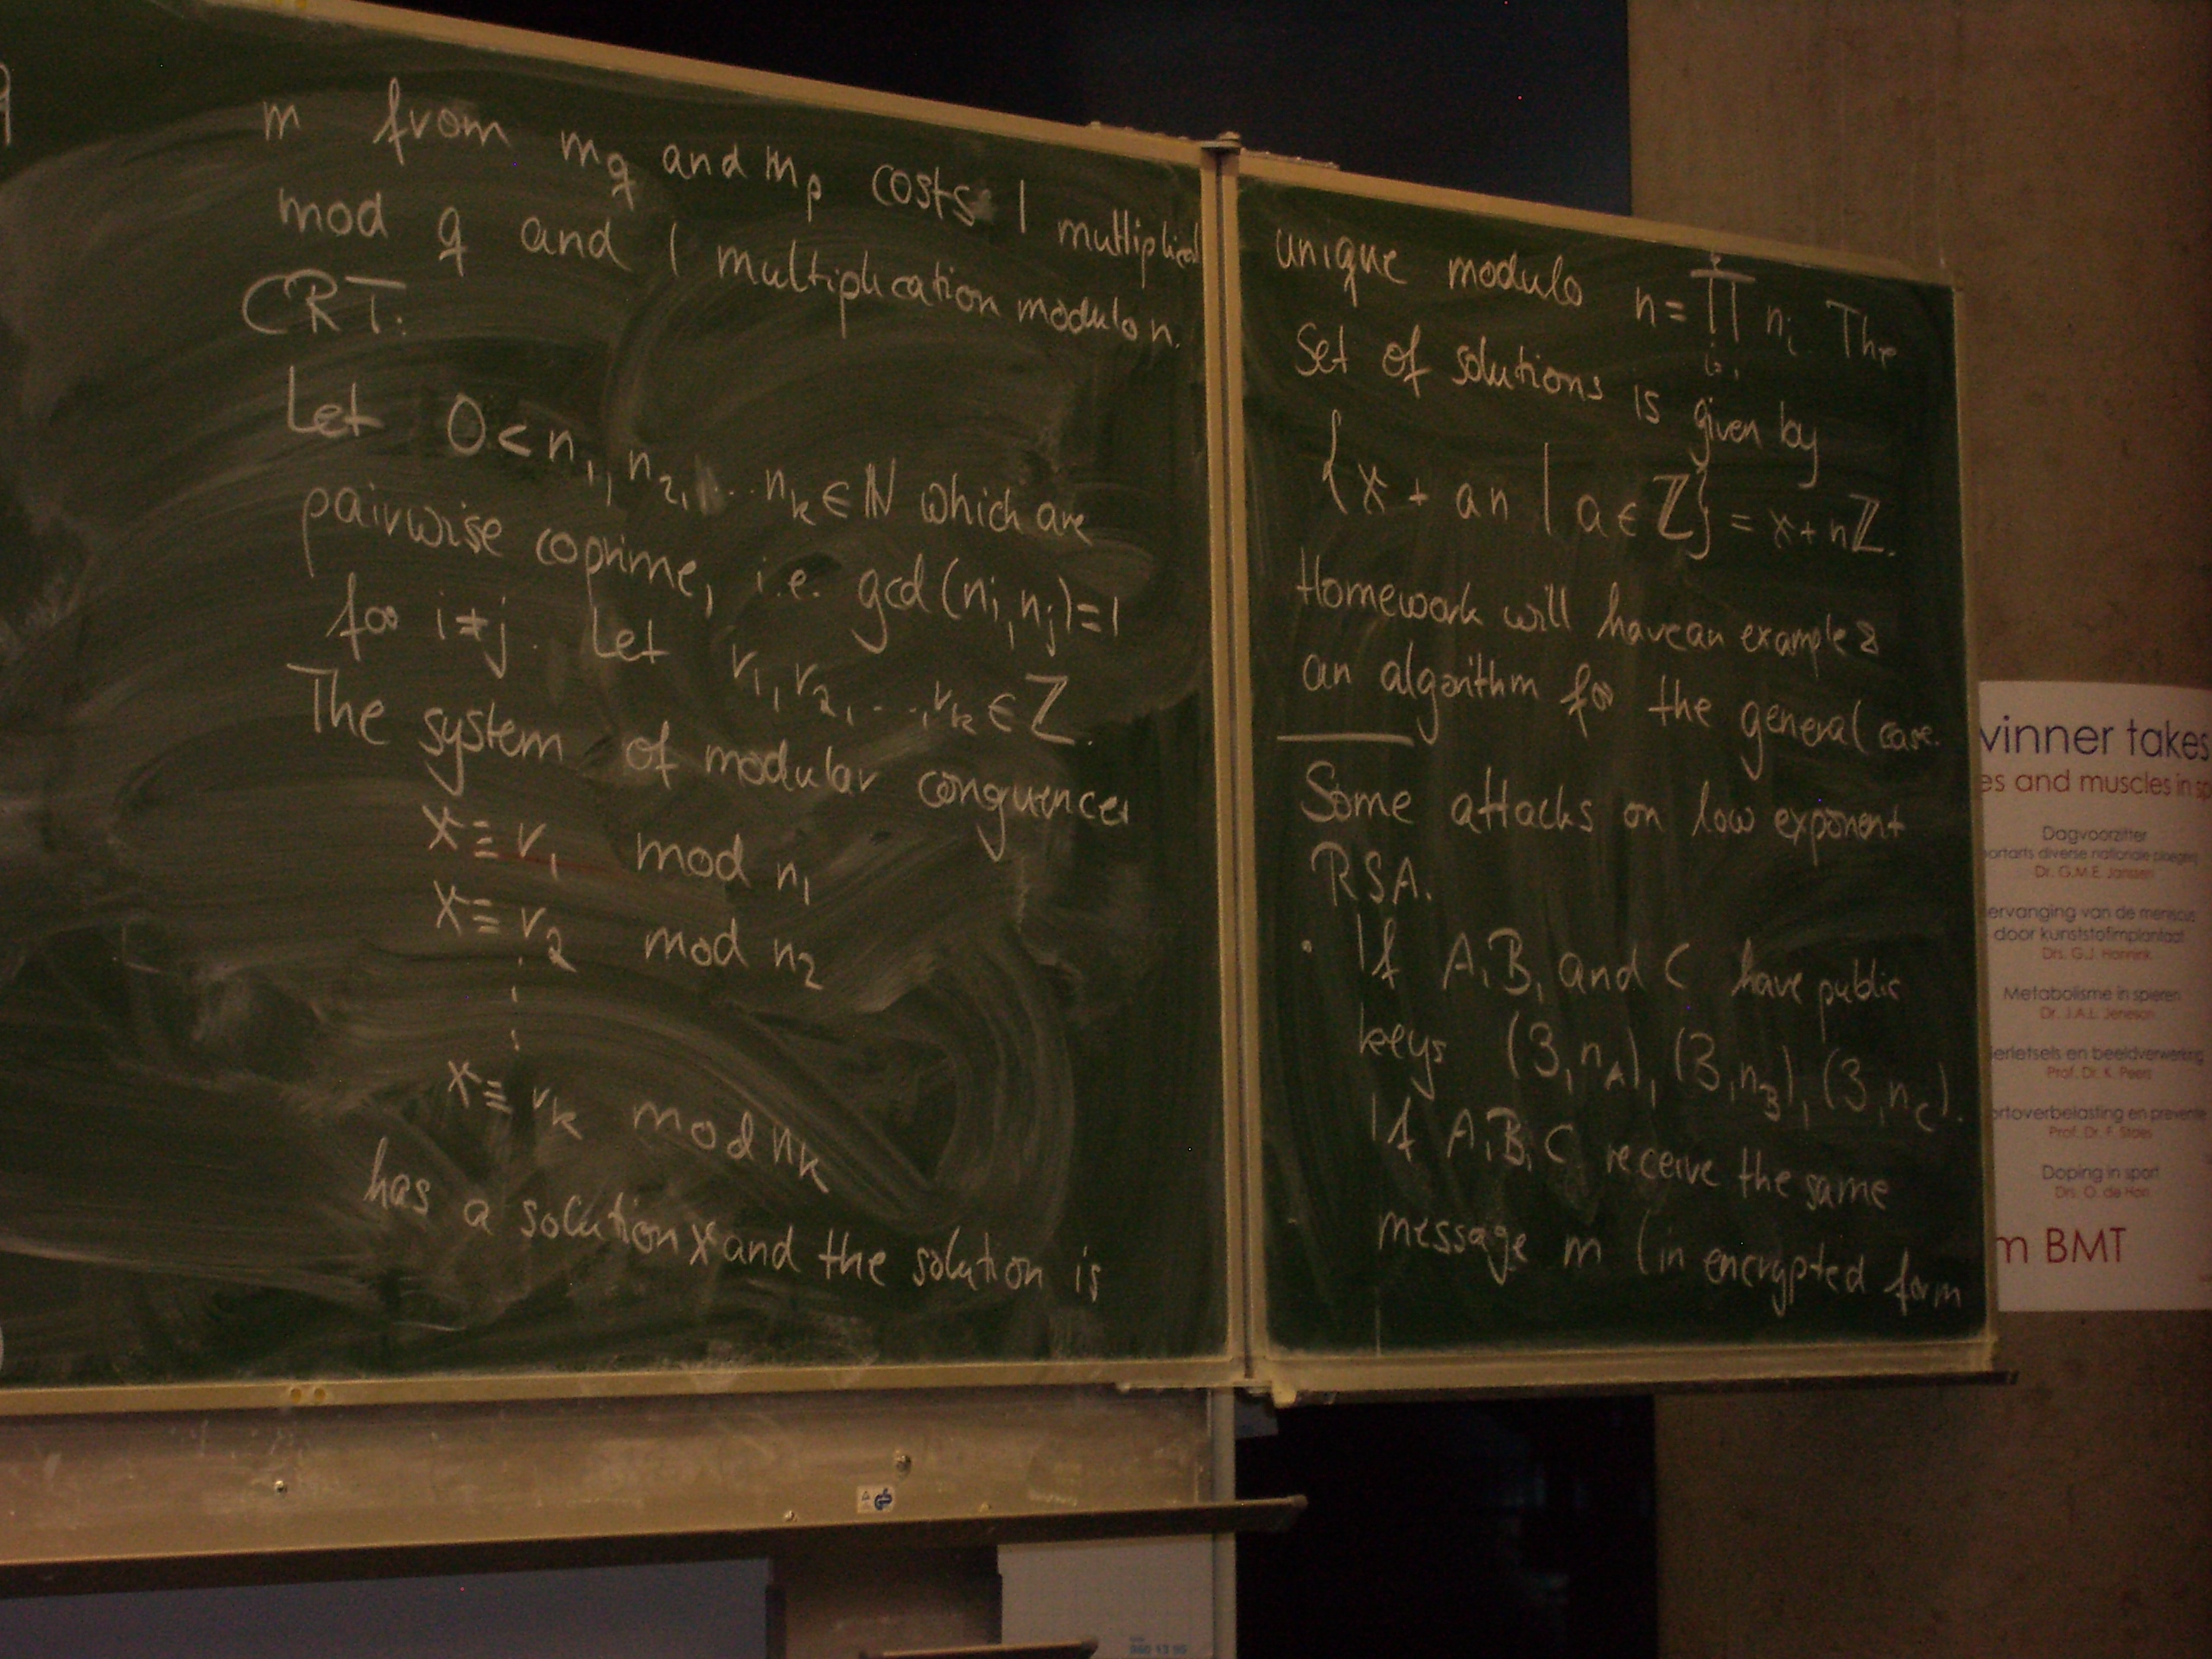 m from m_q and m_p costs 1 multiplicat
mod q and 1 multiplication modulo n.
CRT:
Let 0 < n_1, n_2, ... n_k ∈ ℕ which are
pairwise coprime, i.e. gcd(n_i, n_j) = 1
for i ≠ j. Let r_1, r_2, ..., r_k ∈ ℤ.
The system of modular conguences
x ≡ r_1 mod n_1
x ≡ r_2 mod n_2
⋮
x ≡ r_k mod n_k
has a solution x and the solution is
unique modulo n = ∏_{i=1}^{k} n_i. The
Set of solutions is given by
{x + an | a ∈ ℤ} = x + nℤ.
Homework will have an example &
an algorithm for the general case.
Some attacks on low exponent
RSA.
· If A, B, and C have public
keys (3, n_A), (3, n_B), (3, n_C).
If A, B, C receive the same
message m (in encrypted form
vinner takes
es and muscles in sp
Dagvoorzitter
ortarts diverse nationale ploegen
Dr. G.M.E. Janssen
ervanging van de meniscus
door kunststofimplantaat
Drs. G.J. Hannink
Metabolisme in spieren
Dr. J.A.L. Jeneson
ierletsels en beeldverwerking
Prof. Dr. K. Peers
ortoverbelasting en prevente
Prof. Dr. F. Staes
Doping in sport
Drs. O. de Hon
m BMT